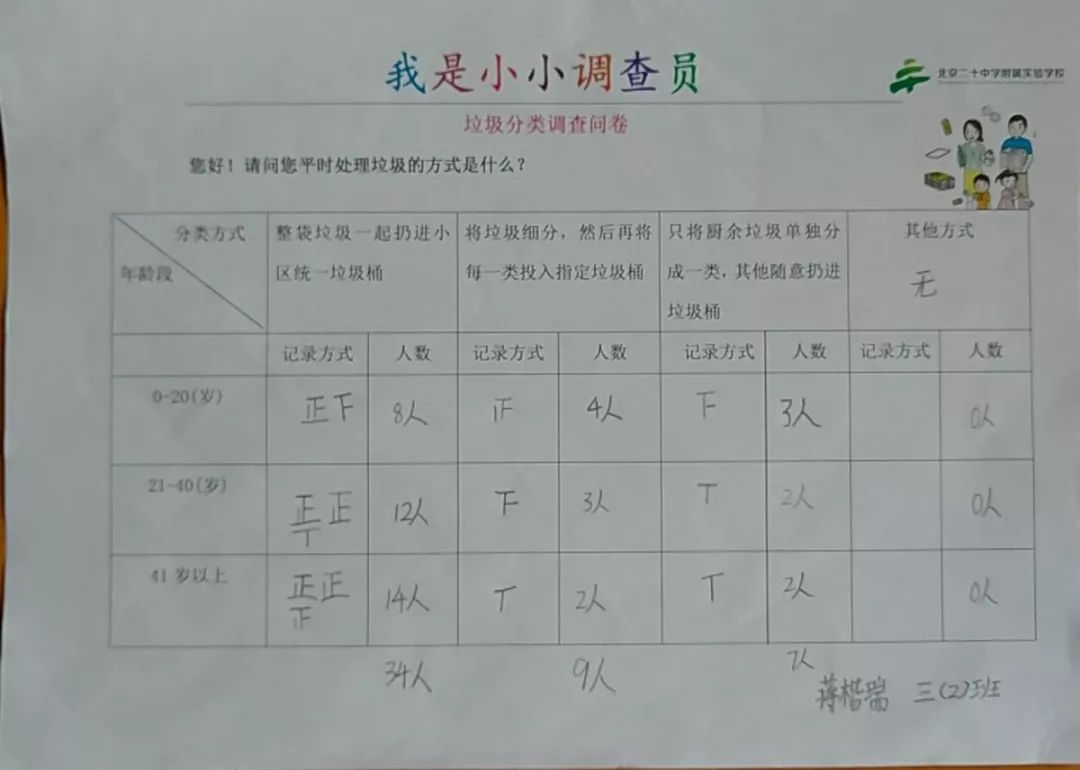 我是小小调查员
北京二十中学附属实验学校
垃圾分类调查问卷
您好！请问您平时处理垃圾的方式是什么？
分类方式
年龄段
整袋垃圾一起扔进小
区统一垃圾桶
将垃圾细分，然后再将
每一类投入指定垃圾桶
只将厨余垃圾单独分
成一类，其他随意扔进
垃圾桶
其他方式
无
记录方式 人数 记录方式 人数 记录方式 人数 记录方式 人数
0-20(岁) 正下 8人 4人 下 3人 0人
21-40(岁) 正正 12人 下 3人 T 2人 0人
T
41 岁以上 正正 14人 T 2人 T 2人 0人
34人 9人 7人
蒋楷瑞 三(2)班